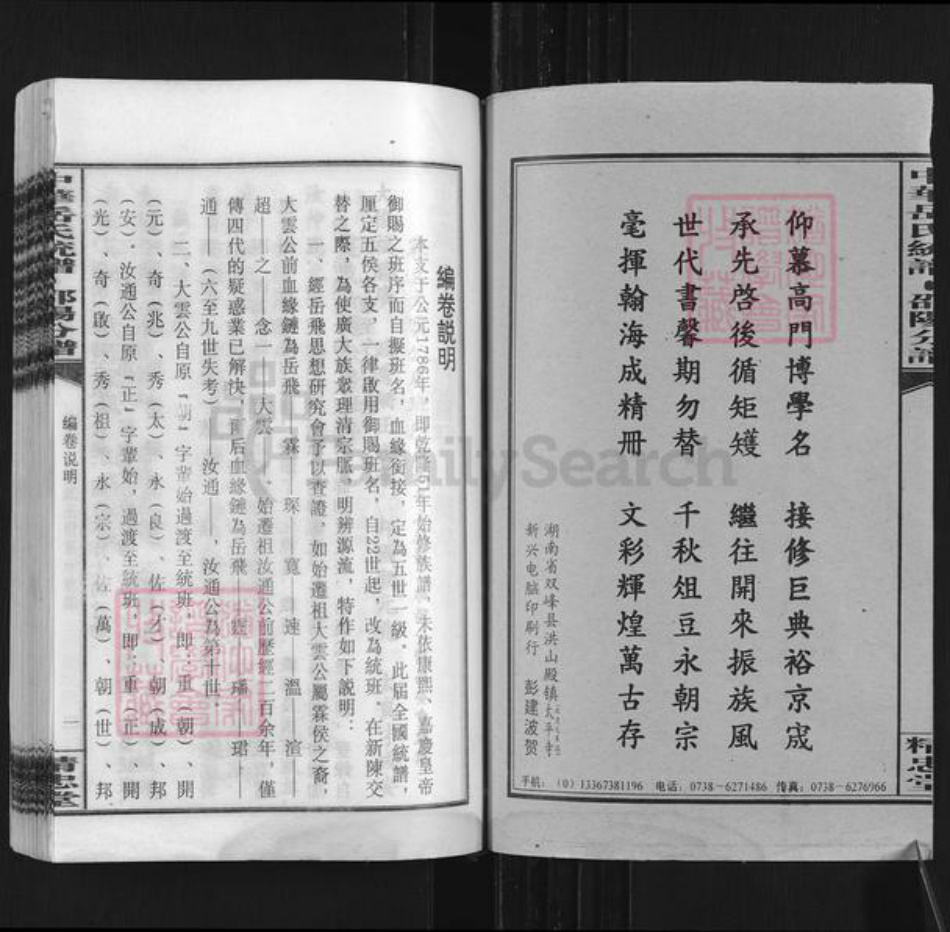 中華岳氏統譜·邵陽分譜
精忠堂
仰慕高門博學名 接修巨典裕京宬
承先啓後循矩矱 繼往開來振族風
世代書馨期勿替 千秋俎豆永朝宗
毫揮翰海成精冊 文彩輝煌萬古存
湖南省双峰县洪山殿镇
新兴电脑印刷行 彭建波贺
手机：（0）13367381196 电话：0738－6271486 传真：0738－6276966
编卷説明
本支于公元1786年，即乾隆51年始修族譜，未依康熙、嘉慶皇帝
御賜之班序而自擬班名，血緣銜接，定為五世一級。此届全國統譜，
厘定五侯各支，一律啟用御賜班名，自22世起，改為統班。在新陳交
替之際，為使廣大族衆理清宗脈，明辨源流，特作如下説明：
一、經岳飛思想研究會予以查證，如始遷祖大雲公屬霖侯之裔，
大雲公前血緣鏈為岳飛——霖——琛——寬——速——溫——渲——
超——之——念一——大雲。始遷祖汝通公前歷經二百余年，僅
傳四代的疑惑業已解決，前后血緣鏈為岳飛——霆——璠——珺——
通——（六至九世失考）——汝通——，汝通公為第十世。
二、大雲公自原“朝”字輩始過渡至統班，即：重（朝）、開
（元）、奇（兆）、秀（太）、永（良）、佐（才）、朝（成）、邦
（安）。汝通公自原“正”字輩始，過渡至統班，即：重（正）、開
（光）、奇（啟）、秀（祖）、永（宗）、佐（萬）、朝（世）、邦
中華岳氏統譜·邵陽分譜
编卷说明
一
精忠堂
FamilySearch